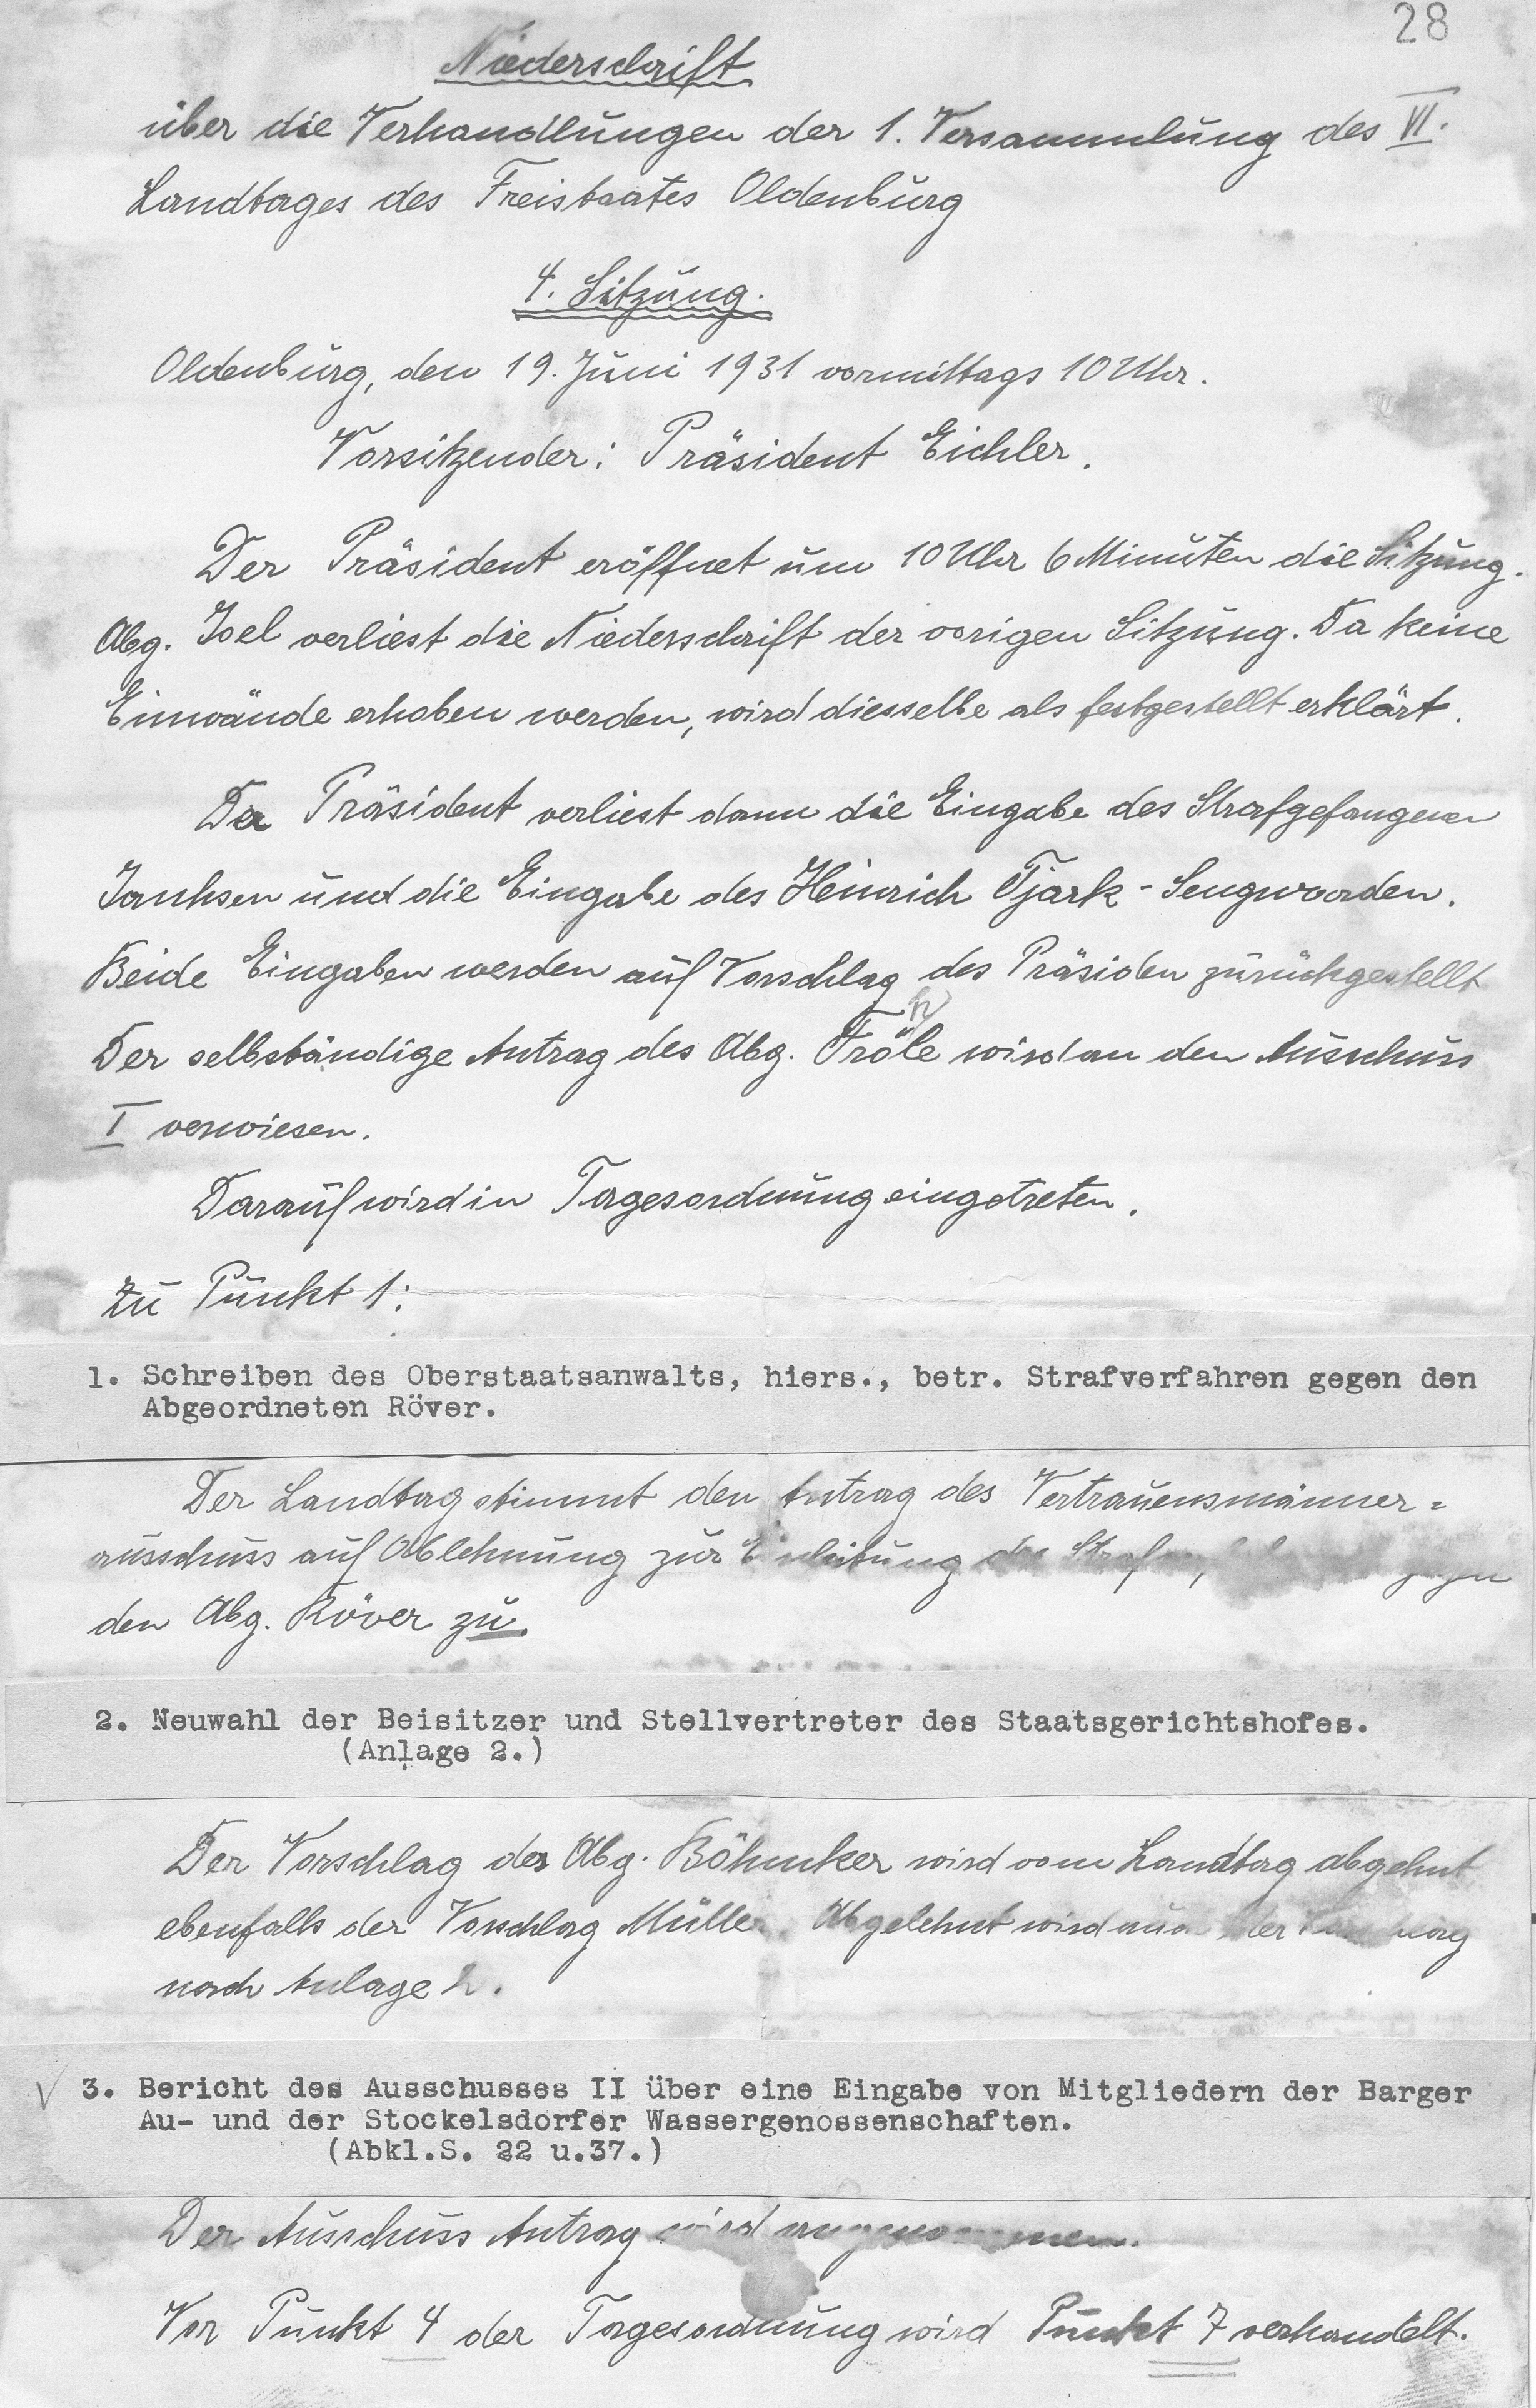 28
Niederschrift
über die Verhandlungen der 1. Versammlung des VI.
Landtages des Freistaates Oldenburg
4. Sitzung.
Oldenburg, den 19. Juni 1931 vormittags 10 Uhr.
Vorsitzender: Präsident Eichler.
Der Präsident eröffnet um 10 Uhr 6 Minuten die Sitzung.
Abg. Joel verliest die Niederschrift der vorigen Sitzung. Da keine
Einwände erhoben werden, wird diesselbe als festgestellt erklärt.
Der Präsident verliest dann die Eingabe des Strafgefangenen
Janhsen und die Eingabe des Heinrich Tjark - Sengwarden.
Beide Eingaben werden auf Vorschlag des Präsiden zurückgestellt
Der selbständige Antrag des Abg. Fröhle wird an den Ausschuss
I verwiesen.
Darauf wird in Tagesordnung eingetreten.
Zu Punkt 1:
1. Schreiben des Oberstaatsanwalts, hiers., betr. Strafverfahren gegen den
Abgeordneten Röver.
Der Landtag stimmt den Antrag des Vertrauensmänner=
ausschuss auf Ablehnung zur Einleitung des gegen
den Abg. Röver zu.
2. Neuwahl der Beisitzer und Stellvertreter des Staatsgerichtshofes.
(Anlage 2.)
Der Vorschlag des Abg. Böhmker wird vom Landtag abgehnt
ebenfalls der Vorschlag Müller. Abgelehnt wird auch der Vorschlag
nach Anlage 2.
3. Bericht des Ausschusses II über eine Eingabe von Mitgliedern der Barger
Au- und der Stockelsdorfer Wassergenossenschaften.
(Abkl.S. 22 u.37.)
Der Ausschuss Antrag wird angenommen.
Vor Punkt 4 der Tagesordnung wird Punkt 7 verhandelt.